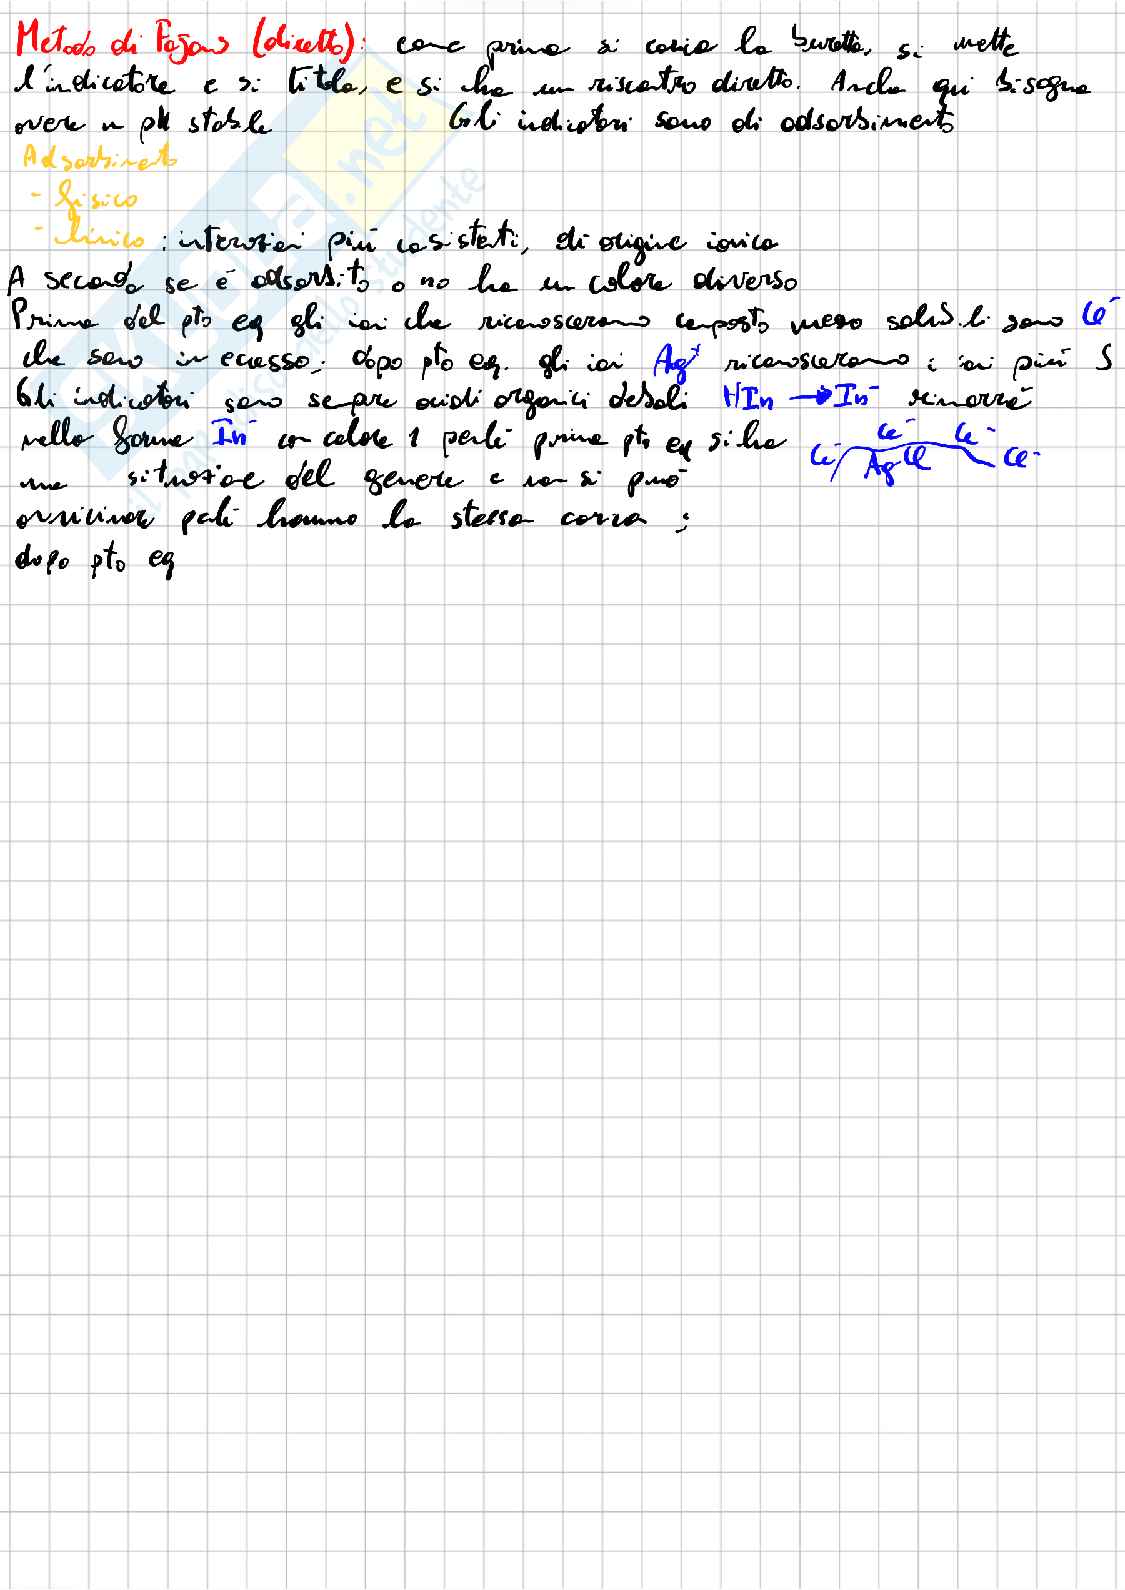 Metodo di Fajans (diretto): come prima si carica la buretta, si mette
l'indicatore e si titola, e si ha un riscontro diretto. Anche qui bisogna
avere un pH stabile Gli indicatori sono di adsorbimento
Adsorbimento
- fisico
- chimico : interazioni più consistenti, di origine ionica
A seconda se è adsorbito o no ha un colore diverso
Prima del pto eq gli ioni che riconosceranno composto meno solub.li sono Cl⁻
che sono in eccesso; dopo pto eq. gli ioni Ag⁺ riconosceranno i ioni più S
Gli indicatori sono sempre acidi organici deboli HIn → In⁻ rimarrà
nella forma In⁻ con colore 1 perché prima pto eq si ha
una situazione del genere e non si può
avvicinare perché hanno la stessa carica ;
Cl⁻ Cl⁻ Cl⁻ AgCl Cl⁻
dopo pto eq